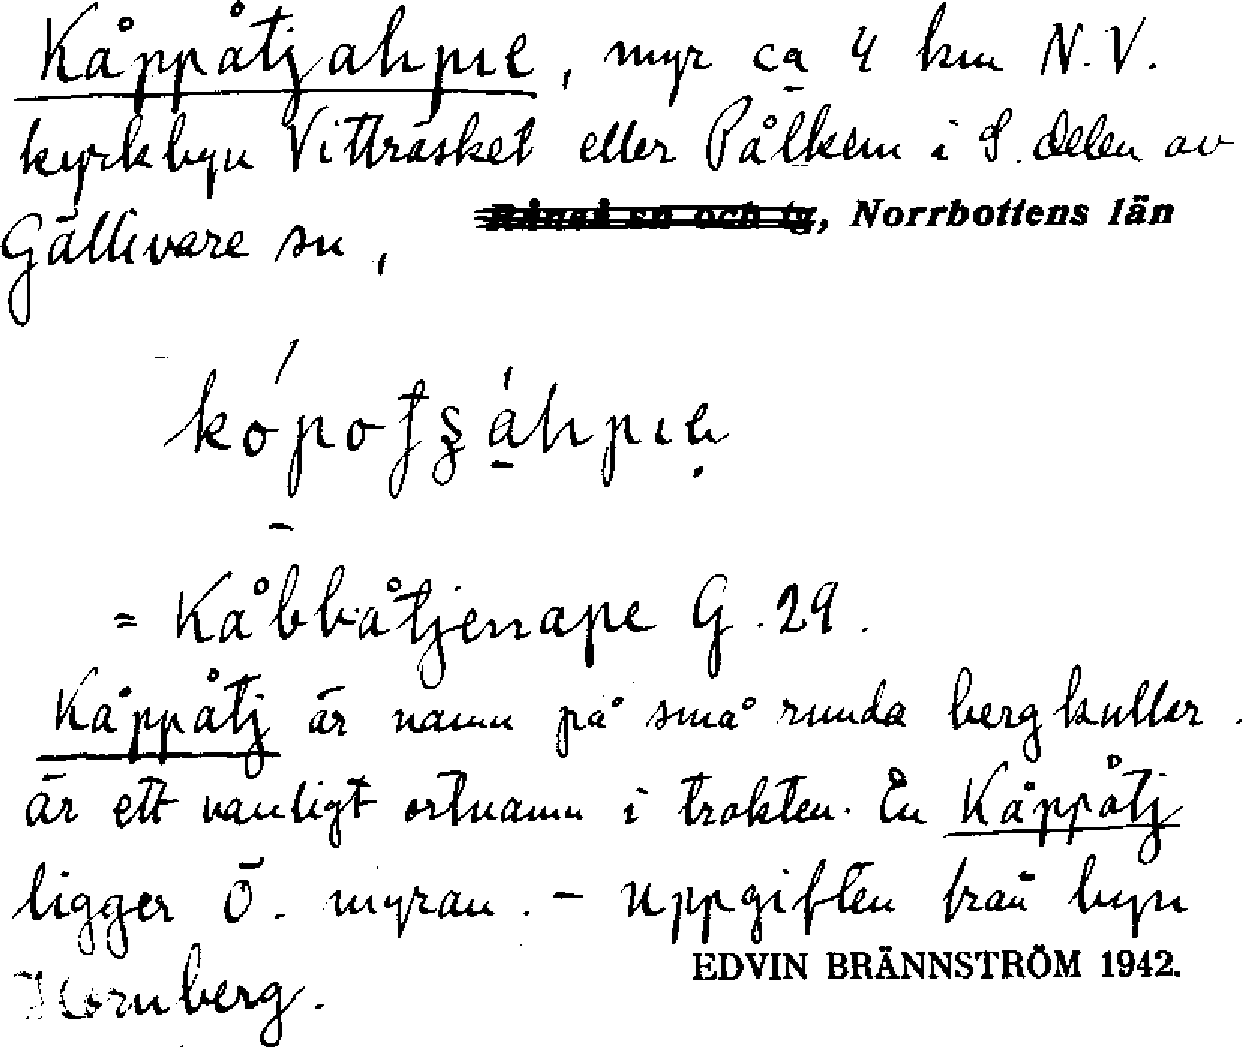 Kåppåtjahpıe, myr ca 4 km N.V.
kyrkbyn Vitträsket eller Pålkem i S. delen av
Gällivare sn, Råneå sn och tg, Norrbottens län
= Kåbbåtjenape G. 29.
Kåppåtj är namn på små runda bergkullar.
är ett vanligt ortnamn i trakten. En Kåppåtj
ligger Ö. myran. – Uppgiften från byn
EDVIN BRÄNNSTRÖM 1942.